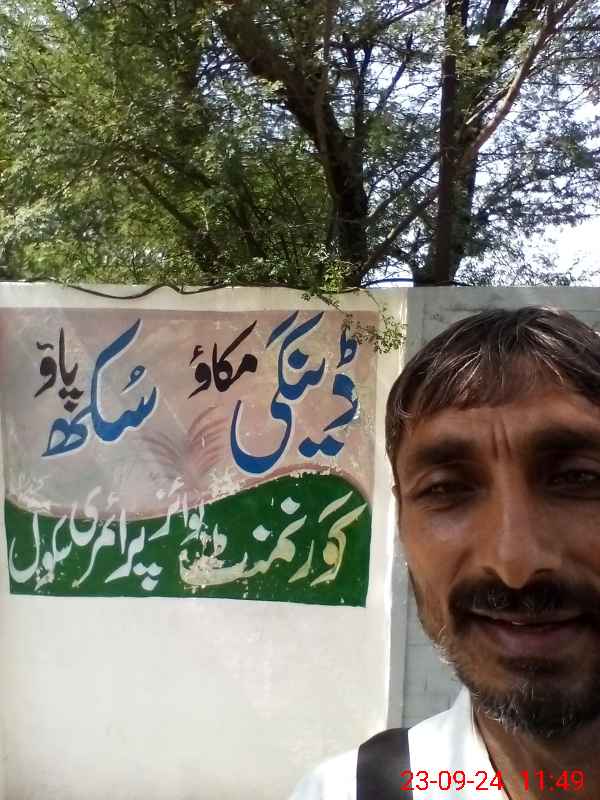 ڈینگی مکاؤ سُکھ پاؤ
گورنمنٹ بوائز پرائمری سکول
23-09-24 11:49